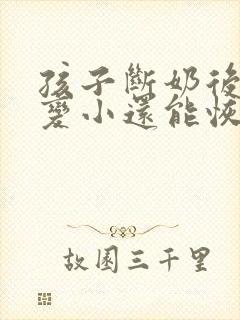 孩子斷奶後
變小還能恢
故園三千里